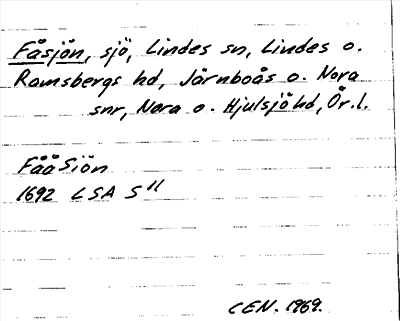 Fåsjön, sjö, Lindes sn, Lindes o.
Ramsbergs hd, Järnboås o. Nora
snr, Nora o. Hjulsjö hd, Ör.l.
Fåå Siön
1692 LSA S 11
CEN. 1969.